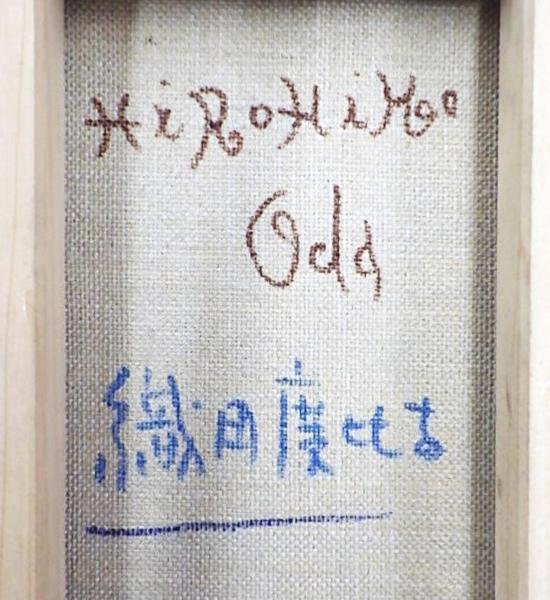 HiRoHiKo
Oda
織田廣比古